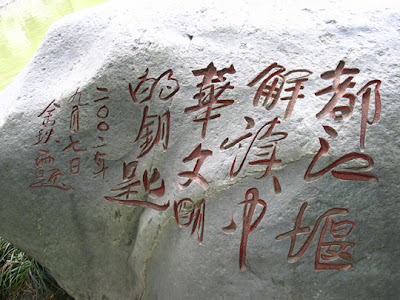 都江堰
解读中
華文明
的钥匙
二〇〇二年
九月七日
余秋雨题